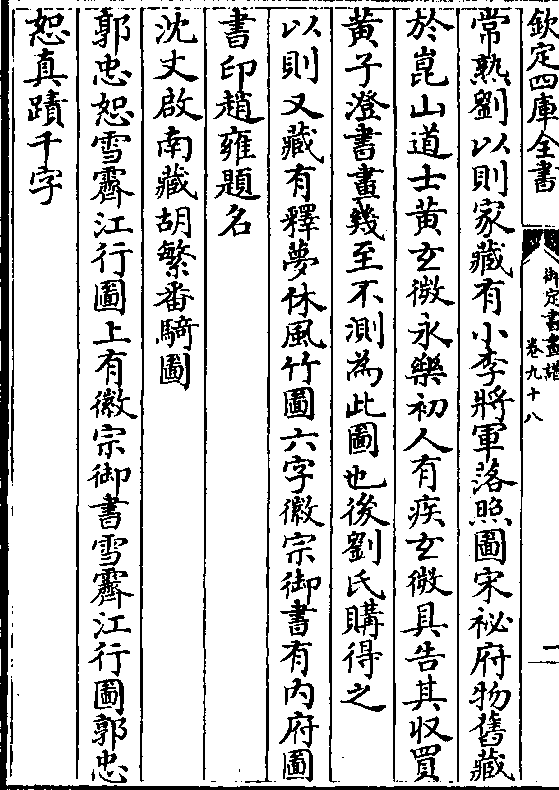 欽定四庫全書
御定書畫譜
卷九十八
一
常熟劉以則家藏有小李將軍落照圖宋祕府物舊藏
於崑山道士黃玄微永樂初人有疾玄微具告其收買
黃子澄書畫幾至不測為此圖也後劉氏購得之
以則又藏有釋夢休風竹圖六字徽宗御書有內府圖
書印趙雍題名
沈丈啟南藏胡繁番騎圖
郭忠恕雪霽江行圖上有徽宗御書雪霽江行圖郭忠
恕真蹟千字